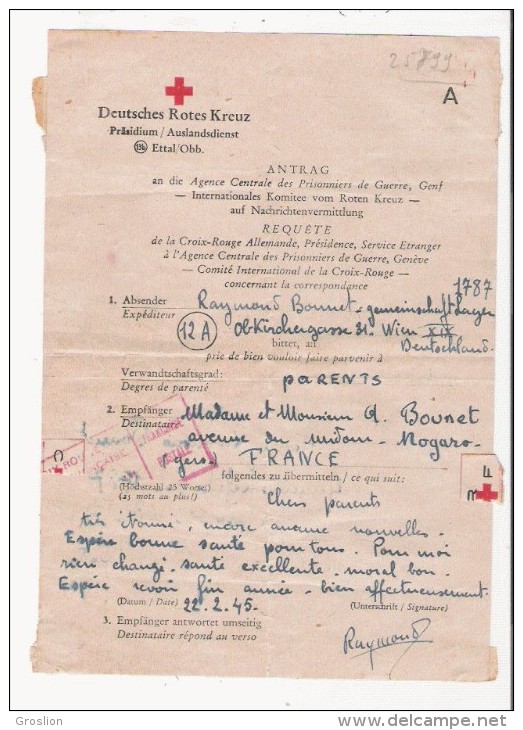 25899
A
Deutsches Rotes Kreuz
Präsidium / Auslandsdienst
(13b) Ettal/Obb.
ANTRAG
an die Agence Centrale des Prisonniers de Guerre, Genf
— Internationales Komitee vom Roten Kreuz —
auf Nachrichtenvermittlung
REQUÊTE
de la Croix-Rouge Allemande, Présidence, Service Etranger
à l'Agence Centrale des Prisonniers de Guerre, Genève
— Comité International de la Croix-Rouge —
concernant la correspondance
1787
1. Absender Raymond Bounet - gemeinschaft Lager
Expéditeur
12A Ob. Kirchergasse 31. Wien XIX
bittet, an Deutschland.
prie de bien vouloir faire parvenir à
Verwandtschaftsgrad: PARENTS
Degres de parenté
2. Empfänger Madame et Monsieur A. Bounet
Destinataire avenue du midour - Nogaro -
(gers) FRANCE
folgendes zu übermitteln / ce qui suit:
(Höchstzahl 25 Worte!)
(25 mots au plus!) Chers parents
très étonné, encore aucune nouvelles.
Espère bonne santé pour tous. Pour moi
rien changé. santé excellente. moral bon.
Espère revoir fin année. bien affectueusement.
(Datum / Date) 22.2.45. (Unterschrift / Signature)
Raymond
3. Empfänger antwortet umseitig
Destinataire répond au verso
Groslion
delcampe.net